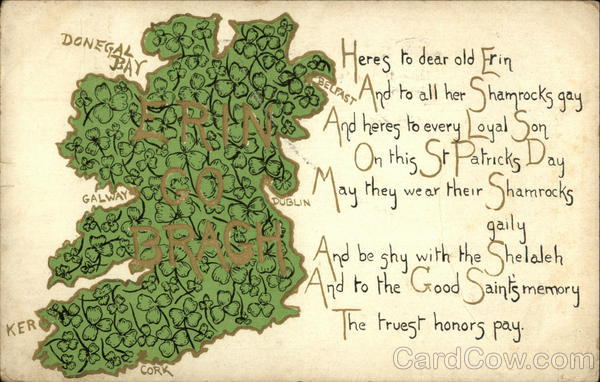 DONEGAL
BAY
BELFAST
ERIN
GO
BRAGH
GALWAY
DUBLIN
KER
CORK
Heres to dear old Erin
And to all her Shamrocks gay
And heres to every Loyal Son
On this St Patricks Day
May they wear their Shamrocks
gaily
And be shy with the Shelaleh
And to the Good Saint's memory
The truest honors pay.
CardCow.com